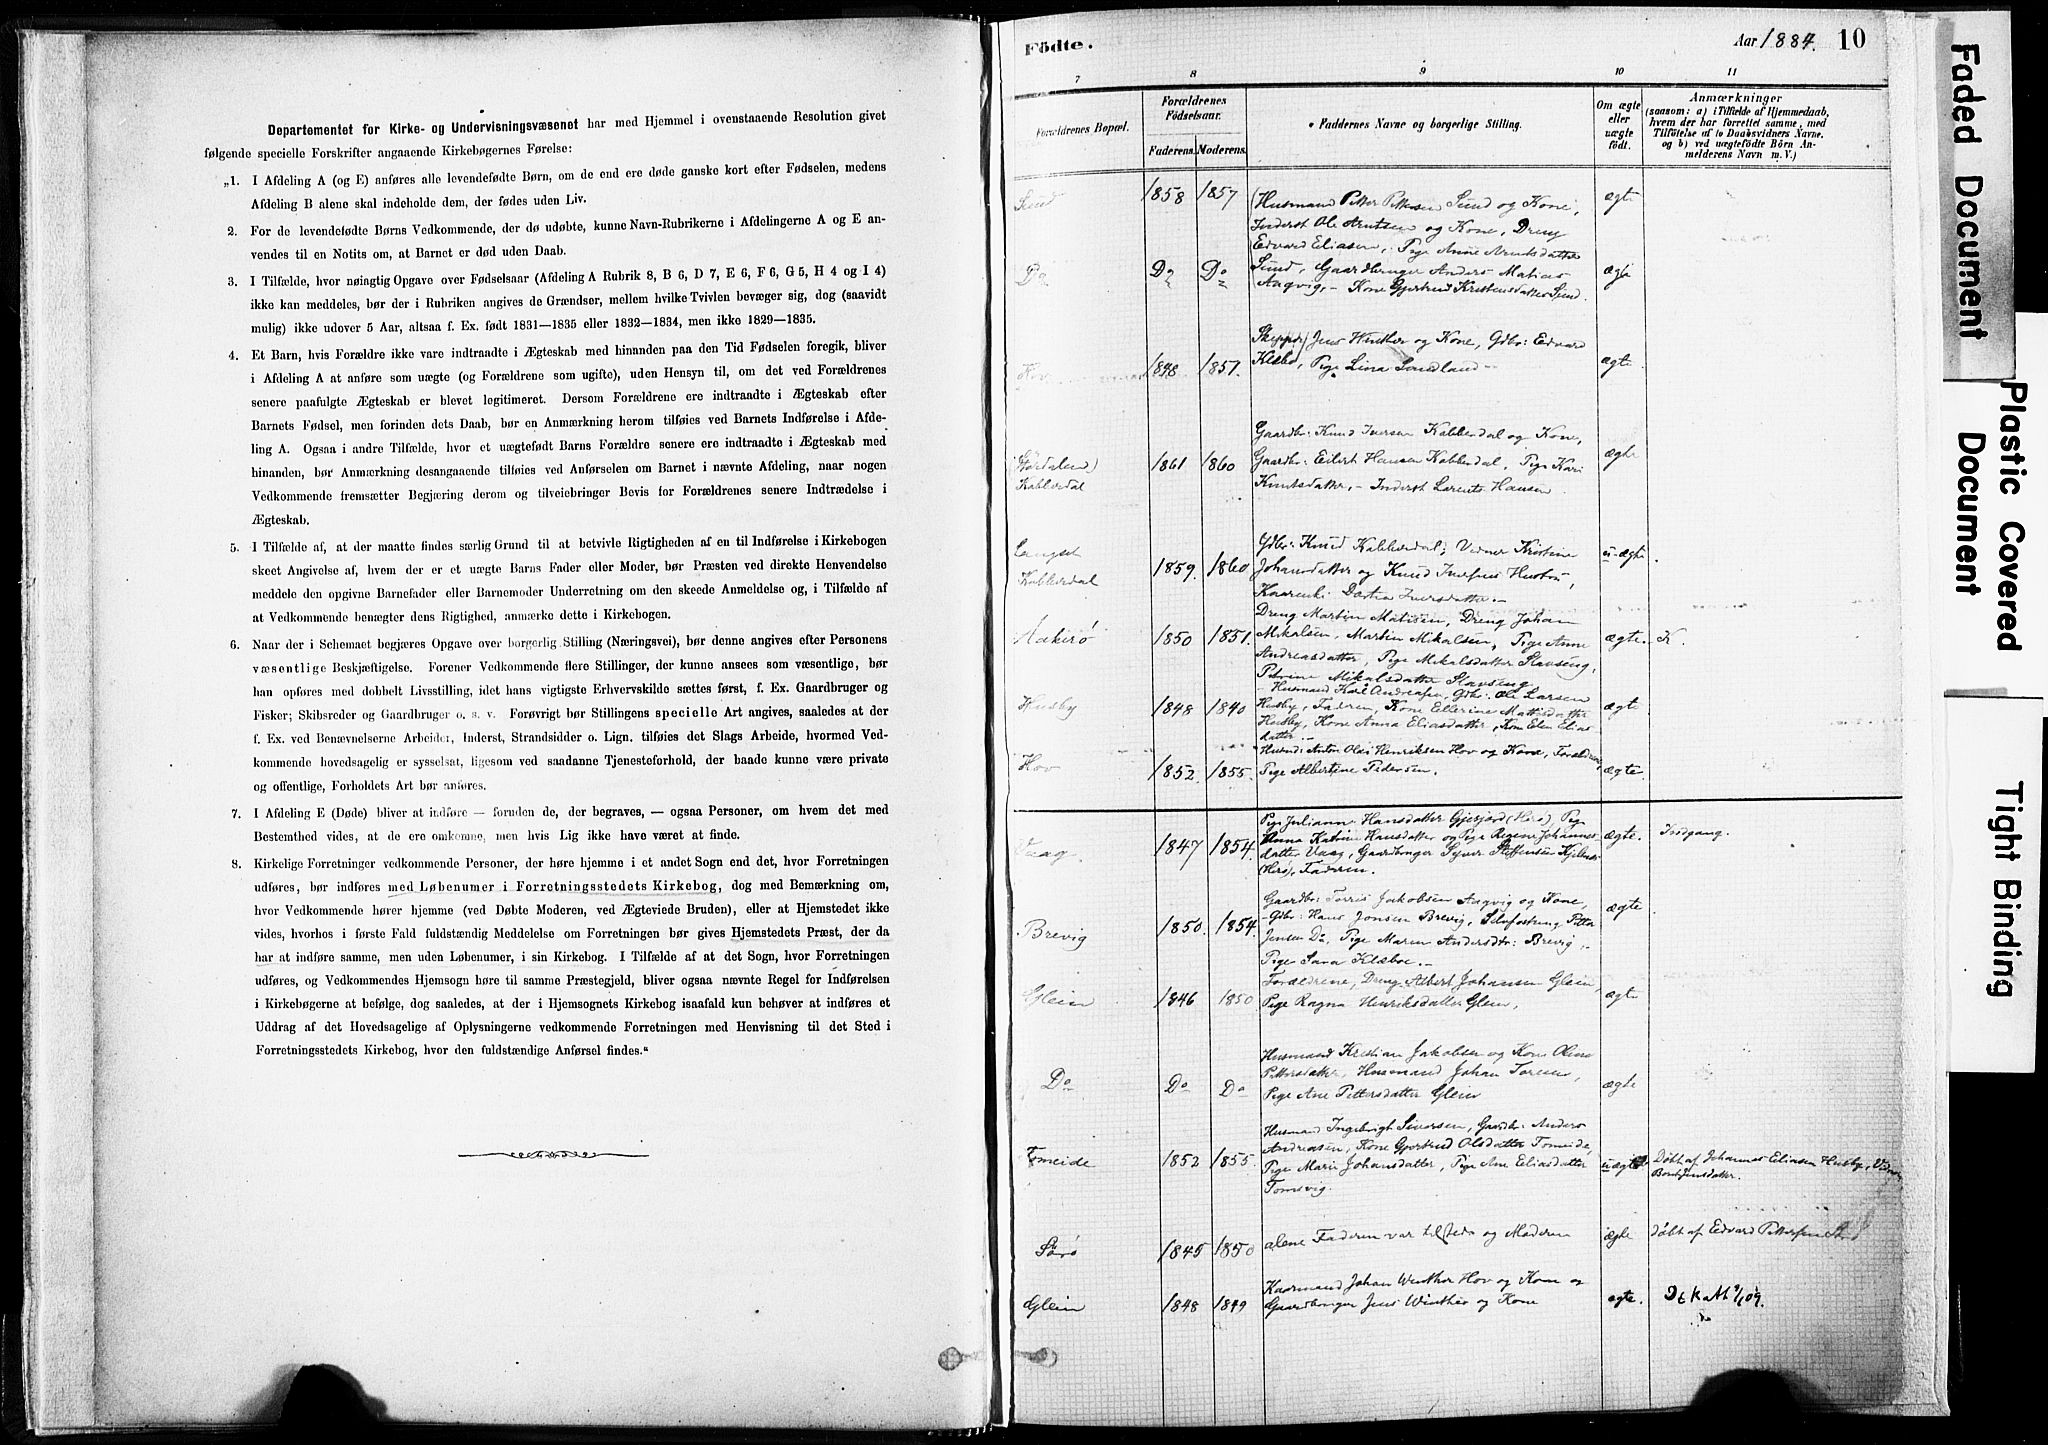 Departementet for Kirke- og Undervisningsvæsenet har med Hjemmel i ovenstaaende Resolution givet
følgende specielle Forskrifter angaaende Kirkebøgernes Førelse:
„1. I Afdeling A (og E) anføres alle levendefødte Børn, om de end ere døde ganske kort efter Fødselen, medens
Afdeling B alene skal indeholde dem, der fødes uden Liv.
2. For de levendefødte Børns Vedkommende, der dø udøbte, kunne Navn-Rubrikerne i Afdelingerne A og E an-
vendes til en Notits om, at Barnet er død uden Daab.
3. I Tilfælde, hvor nøiagtig Opgave over Fødselsaar (Afdeling A Rubrik 8, B 6, D 7, E 6, F 6, G 5, H 4 og I 4)
ikke kan meddeles, bør der i Rubriken angives de Grændser, mellem hvilke Tvivlen bevæger sig, dog (saavidt
mulig) ikke udover 5 Aar, altsaa f. Ex. født 1831—1835 eller 1832—1834, men ikke 1829—1835.
4. Et Barn, hvis Forældre ikke vare indtraadte i Ægteskab med hinanden paa den Tid Fødselen foregik, bliver
i Afdeling A at anføre som uægte (og Forældrene som ugifte), uden Hensyn til, om det ved Forældrenes
senere paafulgte Ægteskab er blevet legitimeret. Dersom Forældrene ere indtraadte i Ægteskab efter
Barnets Fødsel, men forinden dets Daab, bør en Anmærkning herom tilføies ved Barnets Indførelse i Afde-
ling A. Ogsaa i andre Tilfælde, hvor et uægtefødt Barns Forældre senere ere indtraadte i Ægteskab med
hinanden, bør Anmærkning desangaaende tilføies ved Anførselen om Barnet i nævnte Afdeling, naar nogen
Vedkommende fremsætter Begjæring derom og tilveiebringer Bevis for Forældrenes senere Indtrædelse i
Ægteskab.
5. I Tilfælde af, at der maatte findes særlig Grund til at betvivle Rigtigheden af en til Indførelse i Kirkebogen
skeet Angivelse af, hvem der er et uægte Barns Fader eller Moder, bør Præsten ved direkte Henvendelse
meddele den opgivne Barnefader eller Barnemoder Underretning om den skeede Anmeldelse og, i Tilfælde af
at Vedkommende benægter dens Rigtighed, anmærke dette i Kirkebogen.
6. Naar der i Schemaet begjæres Opgave over borgerlig Stilling (Næringsvei), bør denne angives efter Personens
væsentlige Beskjæftigelse. Forener Vedkommende flere Stillinger, der kunne ansees som væsentlige, bør
han opføres med dobbelt Livsstilling, idet hans vigtigste Erhvervskilde sættes først, f. Ex. Gaardbruger og
Fisker; Skibsreder og Gaardbruger o. s. v. Forøvrigt bør Stillingens specielle Art angives, saaledes at der
f. Ex. ved Benævnelserne Arbeider, Inderst, Strandsidder o. Lign. tilføies det Slags Arbeide, hvormed Ved-
kommende hovedsagelig er sysselsat, ligesom ved saadanne Tjenesteforhold, der baade kunne være private
og offentlige, Forholdets Art bør anføres.
7. I Afdeling E (Døde) bliver at indføre — foruden de, der begraves, — ogsaa Personer, om hvem det med
Bestemthed vides, at de ere omkomne, men hvis Lig ikke have været at finde.
8. Kirkelige Forretninger vedkommende Personer, der høre hjemme i et andet Sogn end det, hvor Forretningen
udføres, bør indføres med Løbenumer i Forretningsstedets Kirkebog, dog med Bemærkning om,
hvor Vedkommende hører hjemme (ved Døbte Moderen, ved Ægteviede Bruden), eller at Hjemstedet ikke
vides, hvorhos i første Fald fuldstændig Meddelelse om Forretningen bør gives Hjemstedets Præst, der da
har at indføre samme, men uden Løbenumer, i sin Kirkebog. I Tilfælde af at det Sogn, hvor Forretningen
udføres, og Vedkommendes Hjemsogn høre til samme Præstegjeld, bliver ogsaa nævnte Regel for Indførelsen
i Kirkebøgerne at befølge, dog saaledes, at der i Hjemsognets Kirkebog isaafald kun behøver at indføres et
Uddrag af det Hovedsagelige af Oplysningerne vedkommende Forretningen med Henvisning til det Sted i
Forretningsstedets Kirkebog, hvor den fuldstændige Anførsel findes.“
Fødte. Aar 1884. 10
7 8 9 10 11
Forældrenes Bopæl.
Forældrenes Fødselsaar.
Faderens. Moderens.
Faddernes Navne og borgerlige Stilling.
Om ægte eller uægte født.
Anmærkninger
(saasom: a) i Tilfælde af Hjemmedaab,
hvem der har forrettet samme, med
Tilføielse af to Daabsvidners Navne.
og b) ved uægtefødte Børn An-
melderens Navn m. V.)
Sund 1858 1857 Husmand Petter Pettersen Sund og Kone, ægte
Inderst Ole Arntsen og Kone, Dreng
Edvard Eliasen, Pige Anne Arntsdatter
Do Do Do Sund, Gaardbruger Anders Matias ægte
Aagvig, - Kone Gjertrud Kristensdatter Sund.
Skipper Jens Winther og Kone, Gdbr: Edvard
Hov 1848 1851. Klæbo, Pige Lina Sandland - ægte.
Gaardbr: Knud Iversen Kobberdal og Kone,
(Stördalen) 1861 1860 Gaardbr: Eilert Hansen Kobberdal, Pige Kari ægte
Kobberdal Knutsdatter, - Inderst Lorents Hansen
Gdbr: Knud Kobberdal; Kristine u-ægte
Kobberdal 1859. 1860 Johansdatter og Knud Iversens Hustru,
Dortea Iversdatter. -
Dreng Martin Matisen, Dreng Johan
1850 1851. Mikalsen, Martin Mikalsen, Pige Anne ægte. K.
Andreasdatter, Pige Mikalsdatter Slavsöng,
Petrine Mikalsdatter Slavsöng
- Husmand Karl Andreasen, Gdbr: Ole Larsen
Husby 1848 1840 Husby, Faderen, Kone Ellerine Mathisdatter ægte
Husby, Kone Anna Eliasdatter, Kone Elen Elias-
datter. -
Husmd: Anton Olai Henriksen Hov og Kone, Forældrene,
Hov 1852. 1855. Pige Albertine Pedersen. ægte.
Pige Julianne Hansdatter (Herö), Pige
Anna Katrine Hansdatter og Pige Regine Johannes- ægte. Indgang.
Vaag. 1847 1854. datter Vaag, Gaardbruger Syver Steffensen
(Herö), Faderen.
Gaardbr: Torris Jakobsen Aagvig og Kone, ægte
Brevig 1850. 1854. - Gdbr: Hans Jonsen Brevig, Petter
Jensen Do, Pige Maren Andersdtr: Brevig -
Pige Sara Klæboe. -
Forældrene, Dreng Albert Johansen Glein,
Glein 1846 1850 Pige Ragna Henriksdatter Glein, ægte
Husmand Kristian Jakobsen og Kone Oline
Do Do Do Pettersdatter, Husmand Johan ægte
Pige Ane Pettersdatter Glein
Husmand Ingebrigt Sivertsen, Gaardbr: Anders
Andreasen, Kone Gjertrud Olsdatter Tomeide,
Tomeide 1852 1855. Pige Marie Johansdatter, Pige Ane Eliasdatter uægte Döbt af Johannes Eliasen Husby,
Tomsvig.
1845 1850 alene Faderen var tilstede og Moderen ægte döbt af Edvard Pettersen
Johan Winther Hov og Kone og
Glein 1848 1849 Gaardbruger Jens Winther og Kone ægte.
Faded Document
Plastic Covered Document
Tight Binding